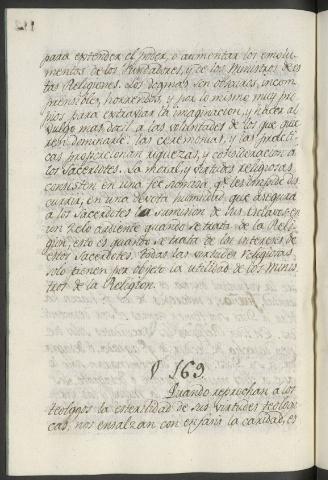 para extender el poder, o aumentar los emolu-
mentos de los Fundadores, y de los Ministros de es-
tas Religiones. Los dogmas son obscuros, incom-
prensibles, horrendos, y por lo mismo muy pro-
pios para extraviar la imaginacion, y hacer al
vulgo mas docil a las voluntades de los que quie-
ren dominarle. las ceremonias, y las practi-
cas proporcionan riquezas, y consideracion a
los Sacerdotes. La moral y virtudes religiosas
consisten en una fee sumisa, qe les impide dis-
currir, en una devota humildad que asegura
a los Sacerdotes la sumision de sus Esclavos, en
un zelo ardiente quando se trata de la Reli-
gion, esto es quando se trata de los intereses de
estos Sacerdotes. Todas las virtudes religiosas
solo tienen por objeto la utilidad de los Minis-
tros de la Religion.
§ 169.
Quando reprochan a los
teologos la esterilidad de sus virtudes teologi-
cas, nos ensalzan con enfasis la caridad, es